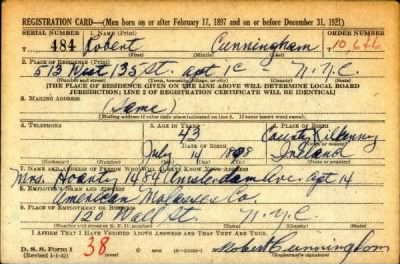 REGISTRATION CARD—(Men born on or after February 17, 1897 and on or before December 31, 1921)
SERIAL NUMBER 1. NAME (Print) ORDER NUMBER
484 Robert Cunningham 10,646
(First) (Middle) (Last)
2. PLACE OF RESIDENCE (Print)
513 West 135 St. apt 1C N.Y.C.
(Number and street) (Town, township, village, or city) (County) (State)
[THE PLACE OF RESIDENCE GIVEN ON THE LINE ABOVE WILL DETERMINE LOCAL BOARD
JURISDICTION; LINE 2 OF REGISTRATION CERTIFICATE WILL BE IDENTICAL]
3. MAILING ADDRESS
(Same)
[Mailing address if other than place indicated on line 2. If same insert word same]
4. TELEPHONE 5. AGE IN YEARS 6. PLACE OF BIRTH
43 County Kilkenny
DATE OF BIRTH
July 14 Ireland
(Mo.) (Day) (Yr.)
7. NAME AND ADDRESS OF PERSON WHO WILL ALWAYS KNOW YOUR ADDRESS
Mrs. 1484 Amsterdam Ave. Apt 14
8. EMPLOYER'S NAME AND ADDRESS
American Molasses Co.
9. PLACE OF EMPLOYMENT OR BUSINESS
120 Wall St. N.Y.C.
(Number and street or R. F. D. number) (Town) (County) (State)
I AFFIRM THAT I HAVE VERIFIED ABOVE ANSWERS AND THAT THEY ARE TRUE.
D. S. S. Form 1
(Revised 1-1-42) 38 Robert Cunningham
(Registrant's signature)